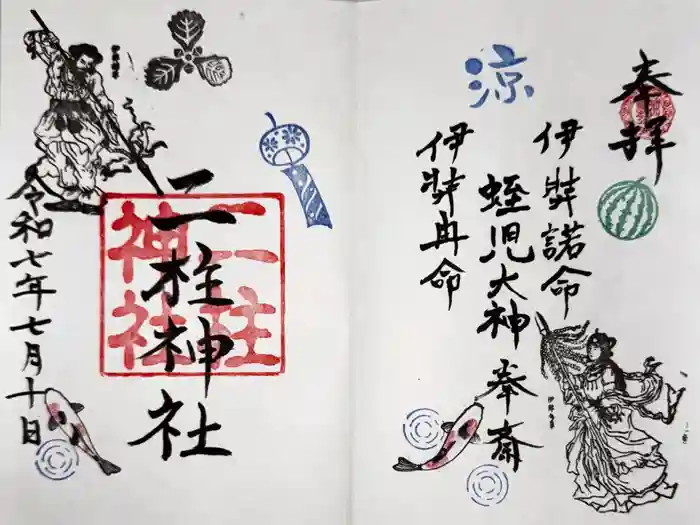 奉拝
涼
伊弉諾命
蛭児大神 奉斎
伊弉冊命
二柱神社
二柱
神社
令和七年七月十日